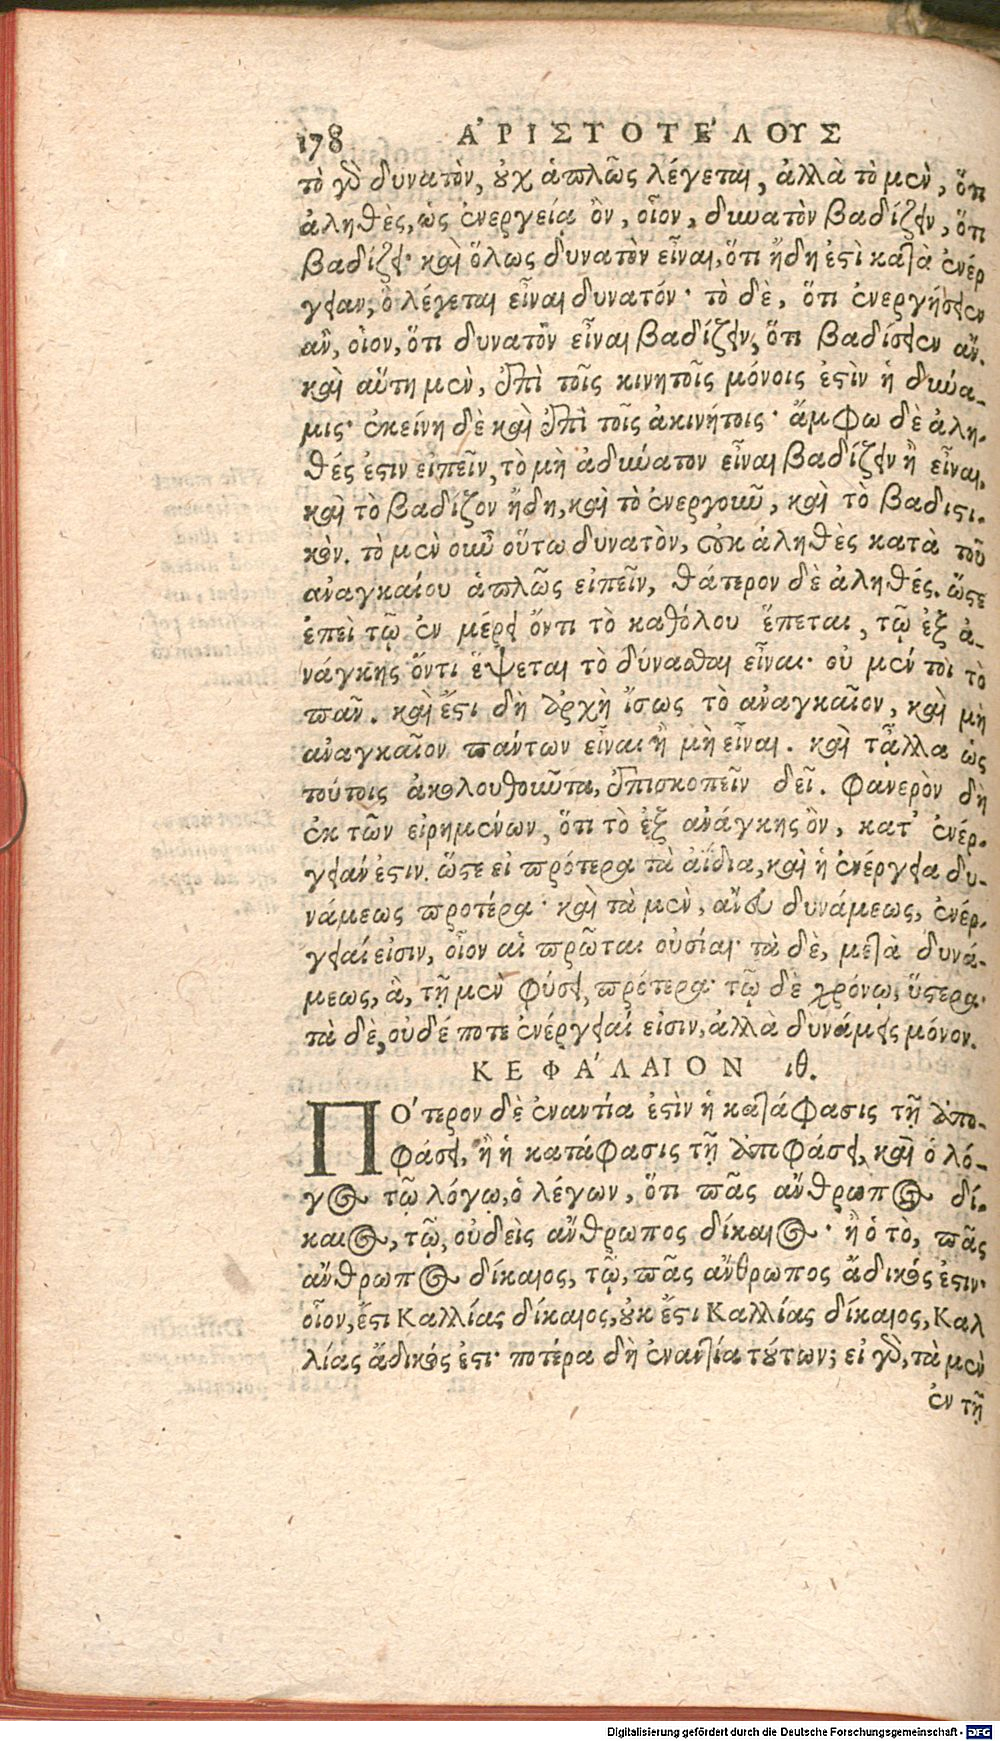 178 ἈΡΙΣΤΟΤΈΛΟΥΣ
τὸ γὰρ δυνατὸν, οὐχ ἁπλῶς λέγεται, ἀλλὰ τὸ μὲν, ὅτι
ἀληθὲς, ὡς ἐνεργείᾳ ὂν, οἷον, δυνατὸν βαδίζειν, ὅτι
βαδίζει· καὶ ὅλως δυνατὸν εἶναι, ὅτι ἤδη ἐστὶ κατὰ ἐνέρ
γειαν, ὃ λέγεται εἶναι δυνατόν· τὸ δὲ, ὅτι ἐνεργήσειεν
ἂν, οἷον, ὅτι δυνατὸν εἶναι βαδίζειν, ὅτι βαδίσειεν ἄν.
καὶ αὕτη μὲν, ἐπὶ τοῖς κινητοῖς μόνοις ἐστὶν ἡ δύνα-
μις· ἐκείνη δὲ καὶ ἐπὶ τοῖς ἀκινήτοις· ἄμφω δὲ ἀλη-
θές ἐστιν εἰπεῖν, τὸ μὴ ἀδύνατον εἶναι βαδίζειν ἢ εἶναι,
καὶ τὸ βαδίζον ἤδη, καὶ τὸ ἐνεργοῦν, καὶ τὸ βαδιστι-
κόν. τὸ μὲν οὖν οὕτω δυνατὸν, οὐκ ἀληθὲς κατὰ τοῦ
ἀναγκαίου ἁπλῶς εἰπεῖν, θάτερον δὲ ἀληθές. ὥστε
ἐπεὶ τῷ ἐν μέρει ὄντι τὸ καθόλου ἕπεται, τῷ ἐξ ἀ-
νάγκης ὄντι ἕψεται τὸ δύνασθαι εἶναι· οὐ μέν τοι τὸ
πᾶν. καὶ ἔστι δὴ ἀρχὴ ἴσως τὸ ἀναγκαῖον, καὶ μὴ
ἀναγκαῖον πάντων εἶναι ἢ μὴ εἶναι. καὶ τἆλλα ὡς
τούτοις ἀκολουθοῦντα, ἐπισκοπεῖν δεῖ. Φανερὸν δὴ
ἐκ τῶν εἰρημένων, ὅτι τὸ ἐξ ἀνάγκης ὂν, κατ' ἐνέρ-
γειάν ἐστιν. ὥστε εἰ πρότερα τὰ ἀΐδια, καὶ ἡ ἐνέργεια δυ-
νάμεως προτέρα· καὶ τὰ μὲν, ἄνευ δυνάμεως, ἐνέρ-
γειαί εἰσιν, οἷον αἱ πρῶται οὐσίαι· τὰ δὲ, μετὰ δυνά-
μεως, ἃ, τῇ μὲν φύσει, πρότερα· τῷ δὲ χρόνῳ, ὕστερα·
τὰ δὲ, οὐδέ ποτε ἐνέργειαί εἰσιν, ἀλλὰ δυνάμεις μόνον.
ΚΕΦΆΛΑΙΟΝ ιθ.
ΠΌτερον δὲ ἐναντία ἐστὶν ἡ κατάφασις τῇ ἀπο-
φάσει, ἢ ἡ κατάφασις τῇ ἀποφάσει, καὶ ὁ λό-
γος τῷ λόγῳ, ὁ λέγων, ὅτι πᾶς ἄνθρωπος δί-
καιος, τῷ, οὐδεὶς ἄνθρωπος δίκαιος· ἢ ὁ τὸ, πᾶς
ἄνθρωπος δίκαιος, τῷ, πᾶς ἄνθρωπος ἄδικός ἐστιν·
οἷον, ἔστι Καλλίας δίκαιος, οὐκ ἔστι Καλλίας δίκαιος, Καλ
λίας ἄδικός ἐστι· ποτέρα δὴ ἐναντία τούτων; εἰ γὰρ, τὰ μὲν
ἐν τῇ
Digitalisierung gefördert durch die Deutsche Forschungsgemeinschaft - DFG